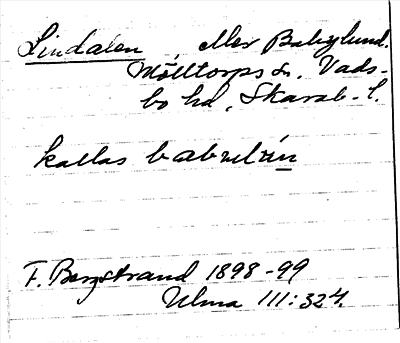 Lindalen, eller Babylund.
Mölltorps sn, Vads-
bo hd, Skarab. l.
kallas
F. Bergstrand 1898-99
Ulma 111:324.